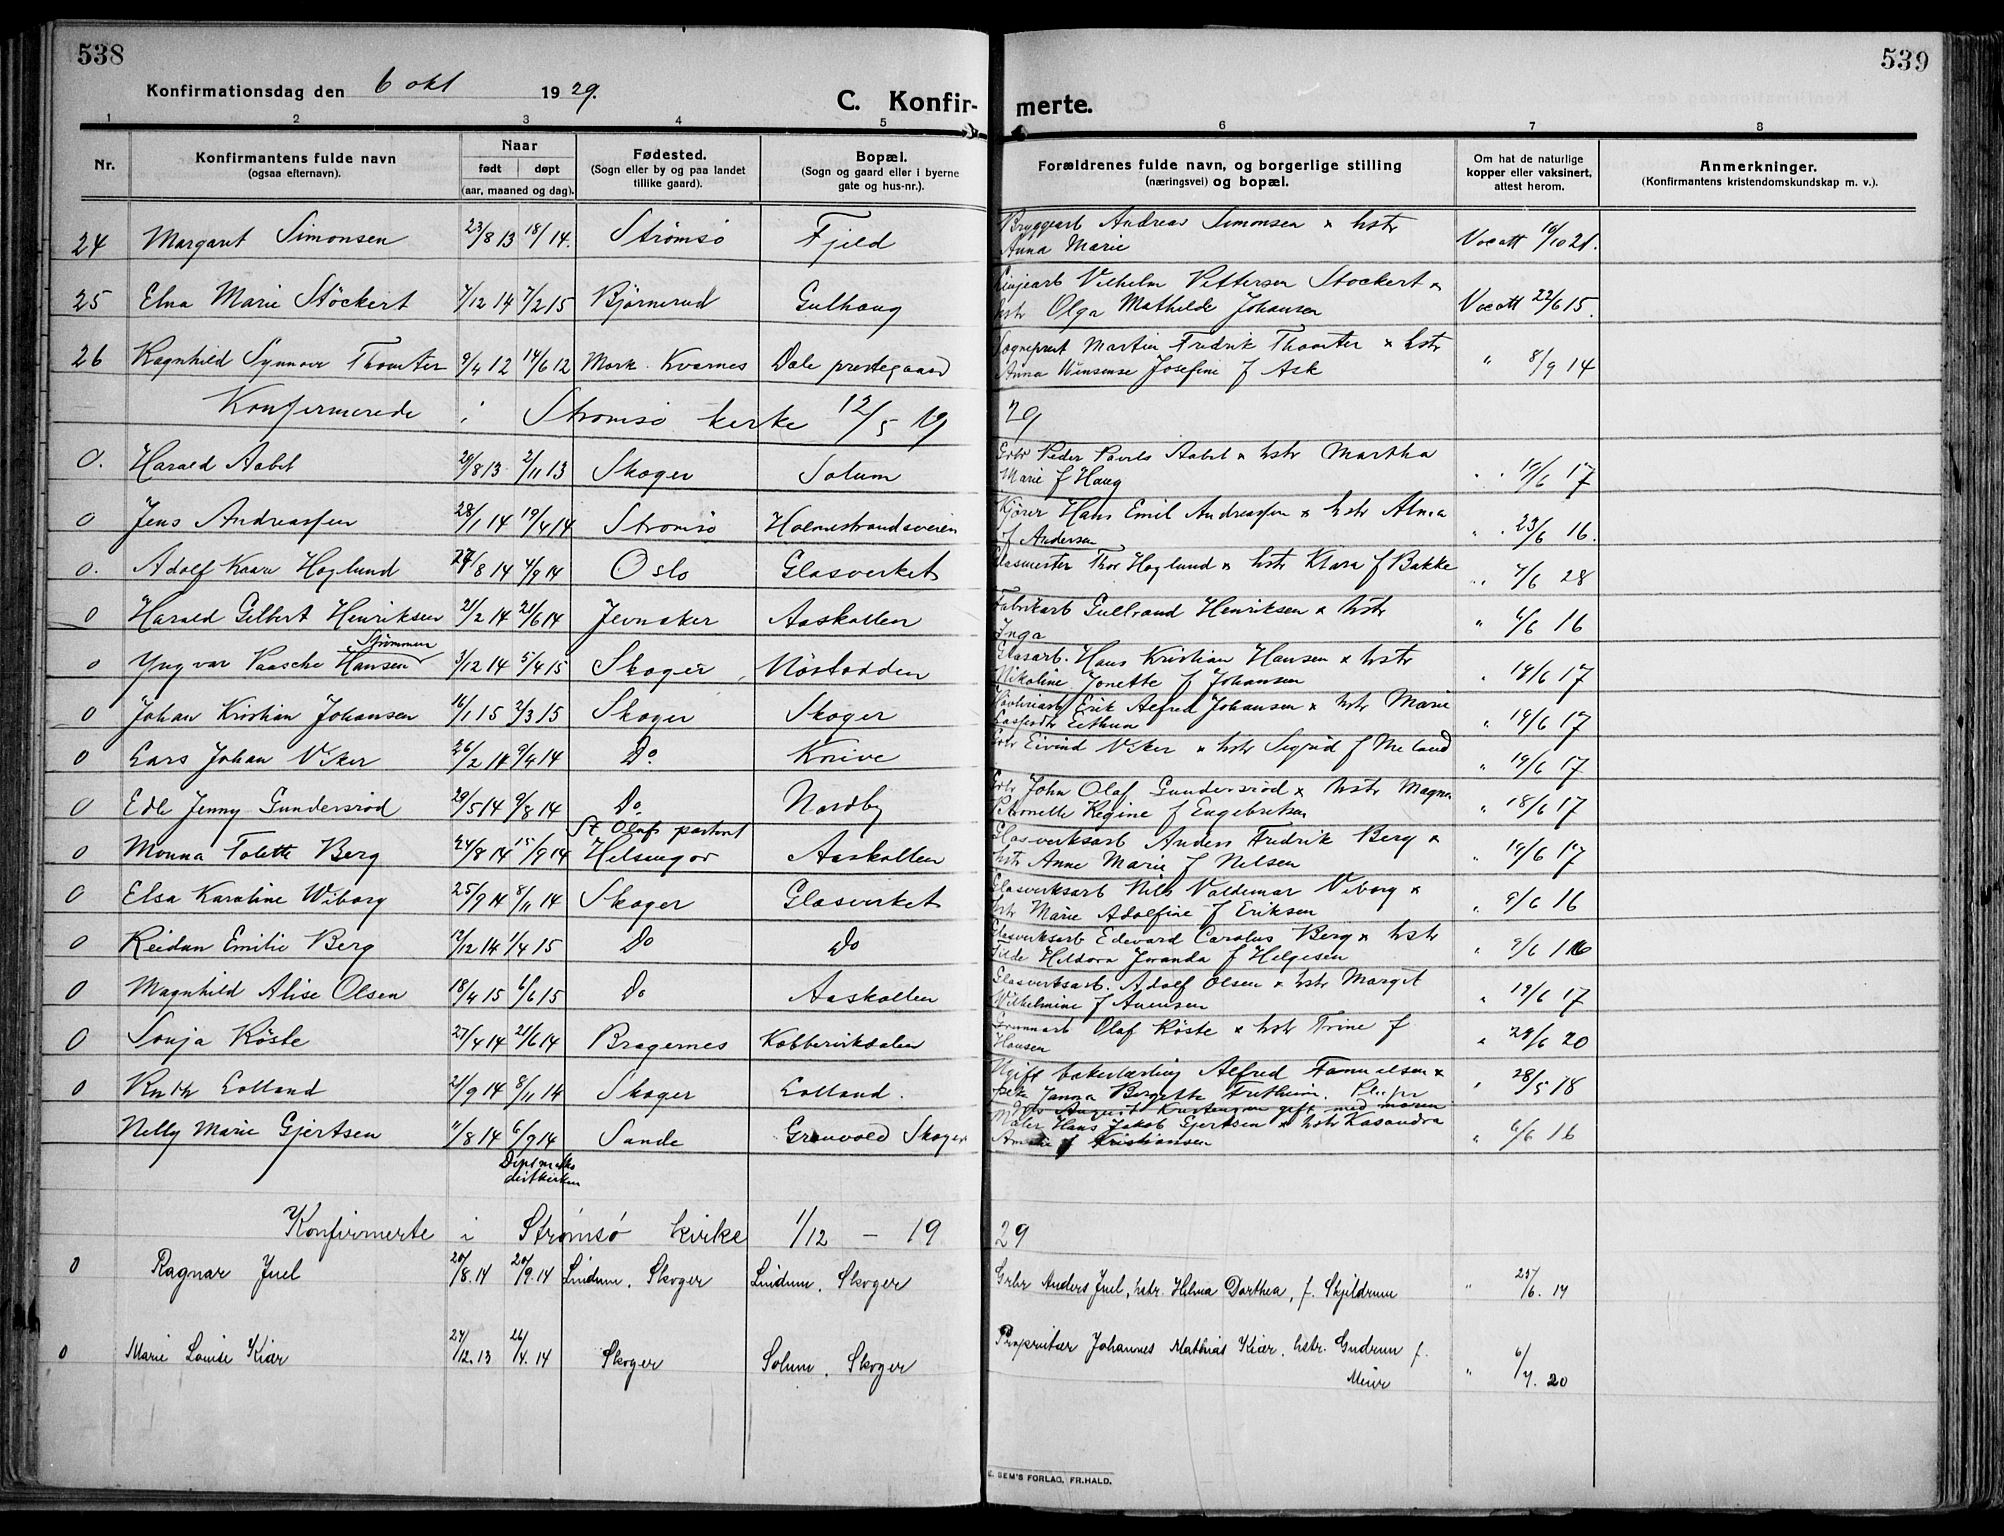 538
539
Konfirmationsdag den 6 okt 1929.
C. Konfir- merte.
1 2 3 4 5 6 7 8
Nr.
Konfirmantens fulde navn
(ogsaa efternavn).
Naar
født døpt
(aar, maaned og dag).
Fødested.
(Sogn eller by og paa landet
tillike gaard).
Bopæl.
(Sogn og gaard eller i byerne
gate og hus-nr.).
Forældrenes fulde navn, og borgerlige stilling
(næringsvei) og bopæl.
Om hat de naturlige
kopper eller vaksinert,
attest herom.
Anmerkninger.
(Konfirmantens kristendomskundskap m. v.).
24 Margaret Simonsen 23/8 13 18/1 14. Strømsø Fjeld Bryggearb Andreas Simonsen & hstr
Anna Marie Vacatt 16/10 21.
25 Elna Marie Stöckert 7/12 14 7/2 15 Bjørnerud Gulhaug Vilhelm Pettersen Stockert &
hstr Olga Mathilde Johansen Vacatt 22/6 15.
26 Ragnhild Synnøve Thomter 9/4 12 14/6 12 Mork. Kvarnes Dale prestegaard Sogneprest Martin Fredrik Thomter & hstr
Anna Josefine f Ask " 8/9 14
Konfirmerede i Strømsø kirke 12/5 19 29
0. Harald Aabel 29/8 13 2/11 13 Skoger Solum Grbr Peder Povels Aabel & hstr Martha
Marie f Haug " 19/6 17
0 Jens Andreassen 28/1 14 19/4 14 Strømsø Holmestrandsveien Kjører Hans Emil Andreassen & hstr Alma
f Andersen " 23/6 16.
0. Adolf Kaare Høglund 27/8 14 4/9 14 Oslo Glasverket Glasmester Thor Høglund & hstr Klara f Bakke " 7/6 28
0 Harald Gilbert Henriksen 21/2 14 21/6 14 Jevnaker Aaskollen Fabrikarb Gulbrand Henriksen & hstr
Inga " 6/6 16
Strømmen
0 Yngvar Paasche Hansen 3/12 14 5/4 15 Skoger Nøstodden Glasarb. Hans Kristian Hansen & hstr
Nikoline Jonette f Johansen " 19/6 17
0 Johan Kristian Johansen 16/1 15 2/3 15 Skoger Skoger Høvleriarb Erik Alfred Johansen & hstr Marie
" 19/6 17
0 Lars Johan Viker 26/2 14 9/4 14 Do Knive Grbr Eivind Viker & hstr Sigrid f Meland " 19/6 17
0 Edle Jenny Gundersrød 29/5 14 9/8 14 Do Nordby Grbr John Olaf Gundersrød & hstr Magna
Petronelle Regine f Engebretsen " 18/6 17
0 Monna Tolette Berg 24/8 14 15/9 14 St. Olafs pastorat
Helsingør Aaskollen Glasverksarb Anders Fredrik Berg &
hstr Anne Marie f Nilsen " 19/6 17
0 Elsa Karoline Wiborg 25/9 14 8/11 14 Skoger Glasverket Glasverksarb Nils Valdemar Viborg &
hstr Marie Adolfine f Eriksen " 9/6 16
0 Reidun Emilie Berg 12/12 14 1/4 15 Do Do Glasverksarb Edevard Carolus Berg & hstr
Tilde Heldora Joranda f Helgesen " 9/6 16
0 Magnhild Alise Olsen 18/4 15 6/6 15 Do Aaskollen Glasverksarb. Adolf Olsen & hstr Margit
Wilhelmine f Arnesen " 19/6 17
0 Sonja Röste 27/4 14 21/6 14 Bragernes Kobbervikdalen Grunnarb Olaf Röste & hstr Trine f
Hansen " 29/6 20
0 Ruth Lolland 21/9 14 8/11 14 Skoger Lolland. Ugift bakerlærling Alfred &
pike Janna Borgette " 28/5 18
Nils August Kristensen gift med moren
Nelly Marie Gjertsen 11/8 14 6/9 14 Sande Grønvold Skoger Maler Hans Jakob Gjertsen & hstr Kasandra
Amalie f Kristiansen " 6/6 16
Døpt
Konfirmerte i Strømsø kirke 1/12 - 19 29
0 Ragnar Juel 20/8.14 20/9.14 Lindum, Skoger Lindum, Skoger Grbr Anders Juel, hstr. Helma Dorthea, f. Skjeldrum " 25/6. 14
0 Marie Louise Kiær 27/12.13 26/4.14 Skoger Solum, Skoger Proprietær Johannes Mathias Kiær, hstr. Gudrun f.
Meier " 6/7. 20
E. SEM'S FORLAG, FR.HALD.